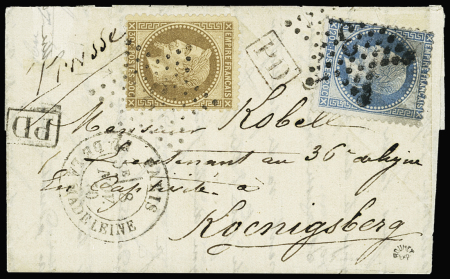 Prusse
EMPIRE FRANÇAIS
EMPIRE FRANÇAIS
PD
PD
Monsieur Kobell
Lieutenant au 36e de ligne
En Captivité à
Koenigsberg
PARIS
MADELEINE